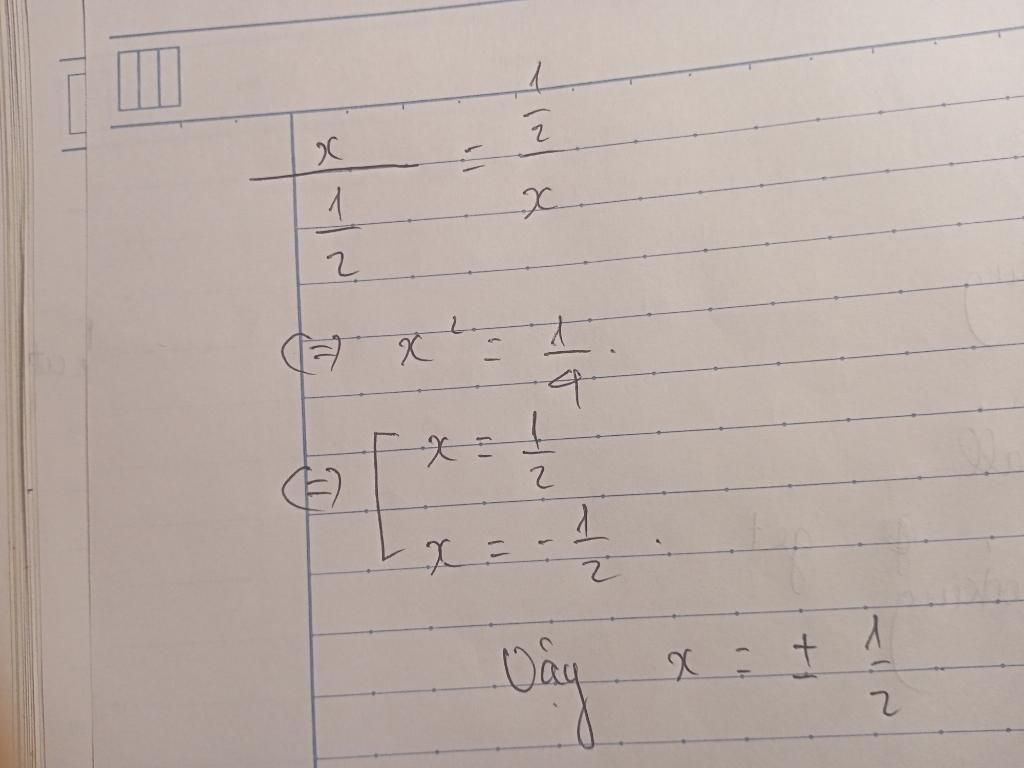 x / (1/2) = (1/2) / x
(=) x² = 1/4 .
(=) [ x = 1/2
x = - 1/2 .
Vậy x = ± 1/2